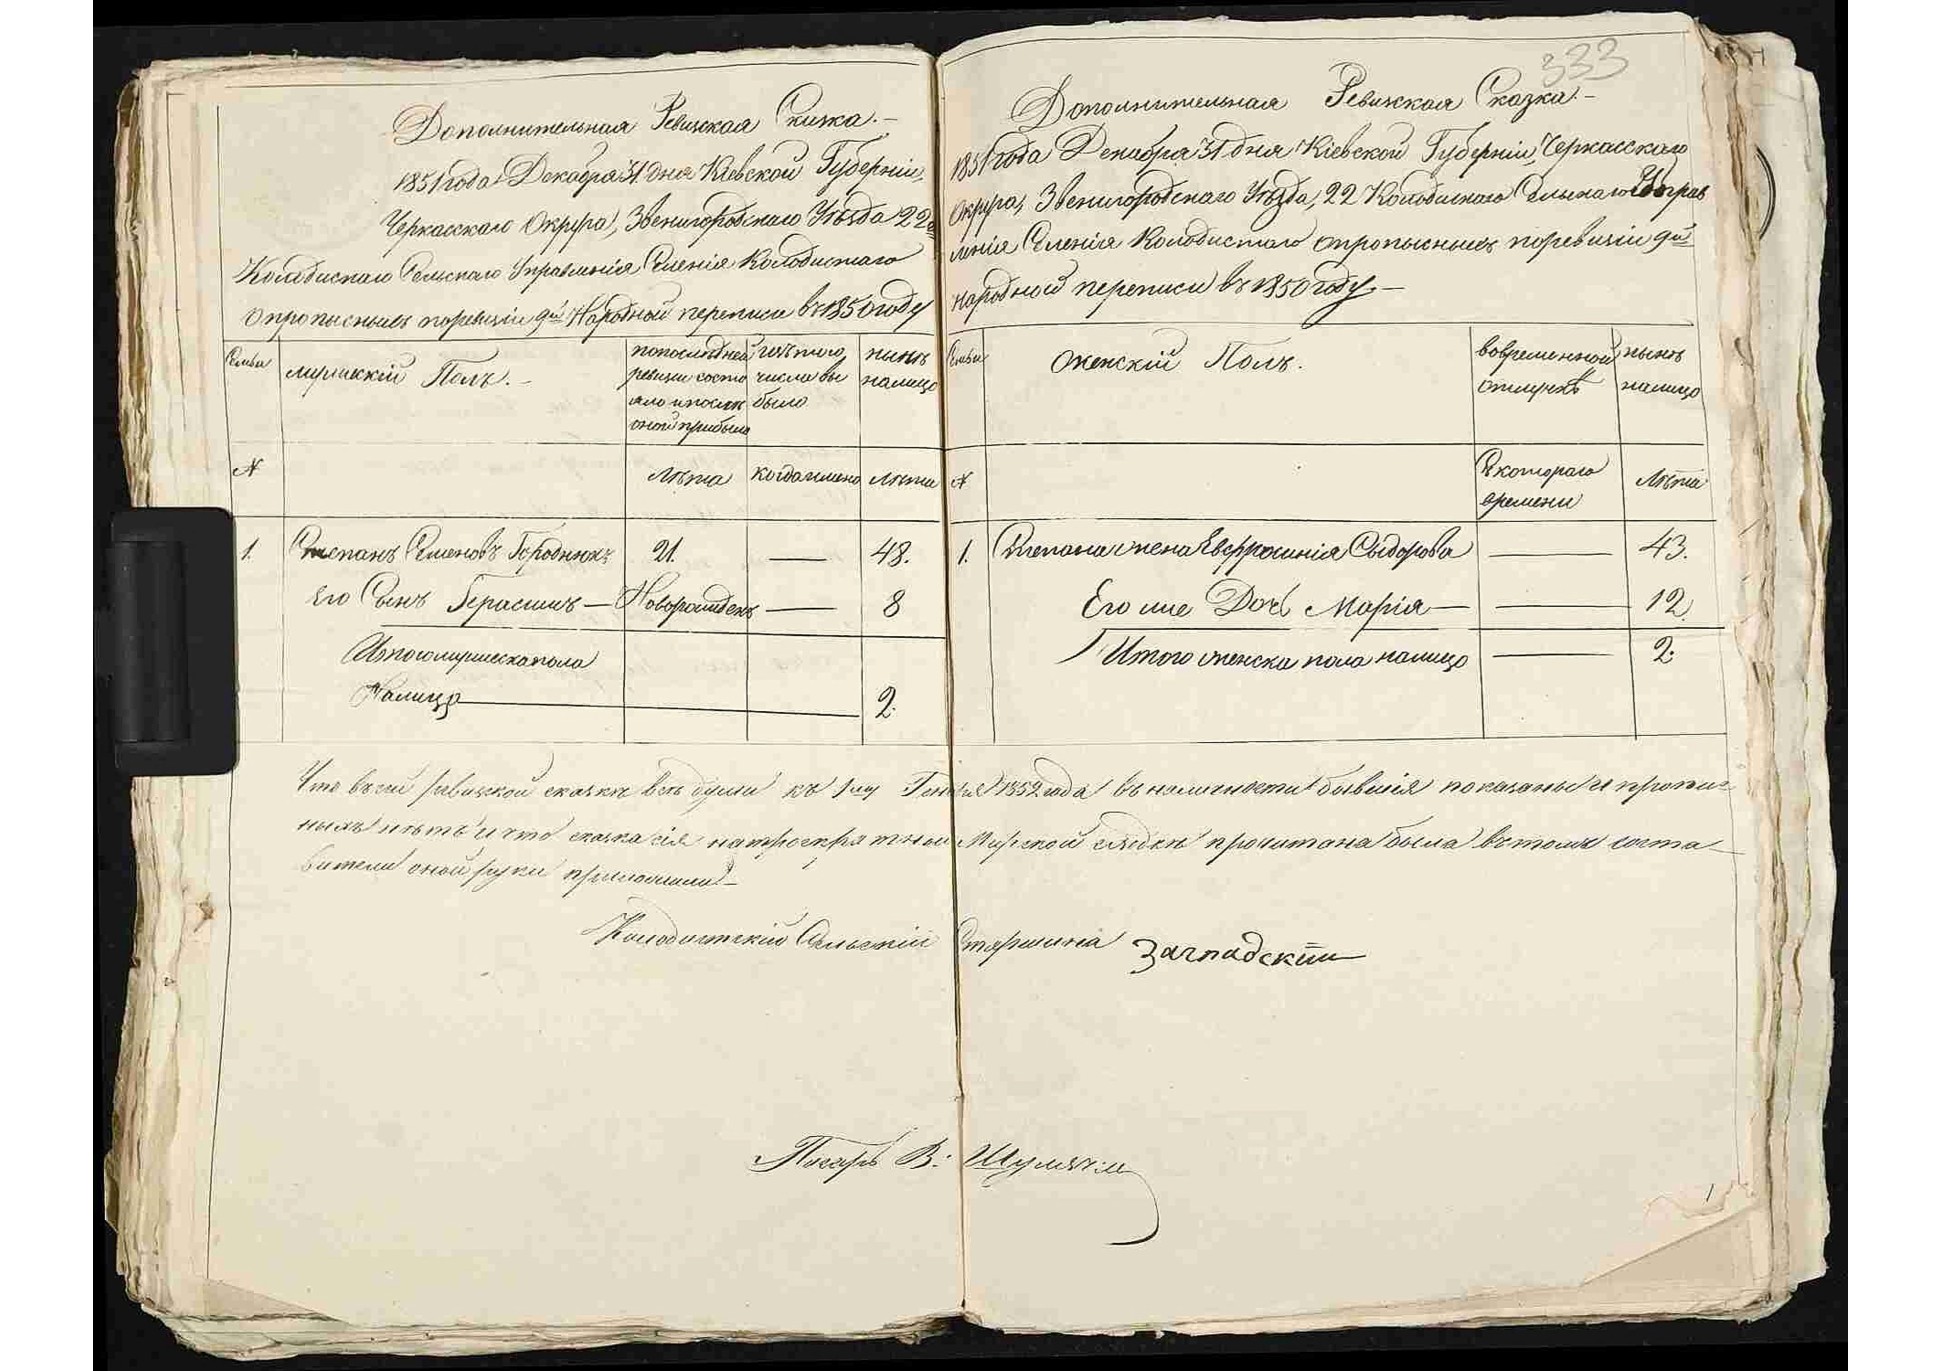 Дополнительная Ревизская Скизка.-
1851 года Декабра 31. дня Кіевской Губерніи,
Черкасскаго Округа, Звенигородскаго Уѣзда 22го
Колодискаго Сельскаго Управленія Селенія Колодистаго
о пропысныхъ поревизіи 9й Народной переписи въ 1850 году
Семьи
мужескій Полъ.-
попослѣдней ревизіи состо яло и послѣ оной прибыло
изъ того числа вы было
нынѣ налицо
№
лѣта
когда именно
лѣта
1. Степанъ Семеновъ Городнюкъ 21. — 48.
Его Сынъ Герасимъ — Новорожденъ — 8
Итого мужеска пола
Налицо — 2.
333
Дополнительная Ревизская Сказка.-
1851 года Декабра 31 дня Кіевской Губерніи, Черкасскаго
Округа, Звенигородскаго Уѣзда, 22 Колодискаго Сельскаго Управ
ленія Селенія Колодистаго о пропысныхъ поревизіи 9й
народной переписи въ 1850 году.-
Семьи
Женскій Полъ.
вовременной отлучкѣ
нынѣ налицо
№
Съ котораго времени
лѣта
1. Степана жена Евфросинія Сыдорова — 43.
Его же Дочь Марія — — 12.
Итого женска пола налицо — 2.
Что въ сей ревизской сказкѣ всѣ души къ 1му Генваря 1852 года въ наличности бывшія показаны и
ныхъ нѣтъ и что сказка сія на Мирской сходкѣ прочитана была въ томъ соста-
вители оной руки приложили-
Колодистскій Сельскій Старшина
Писарь В: